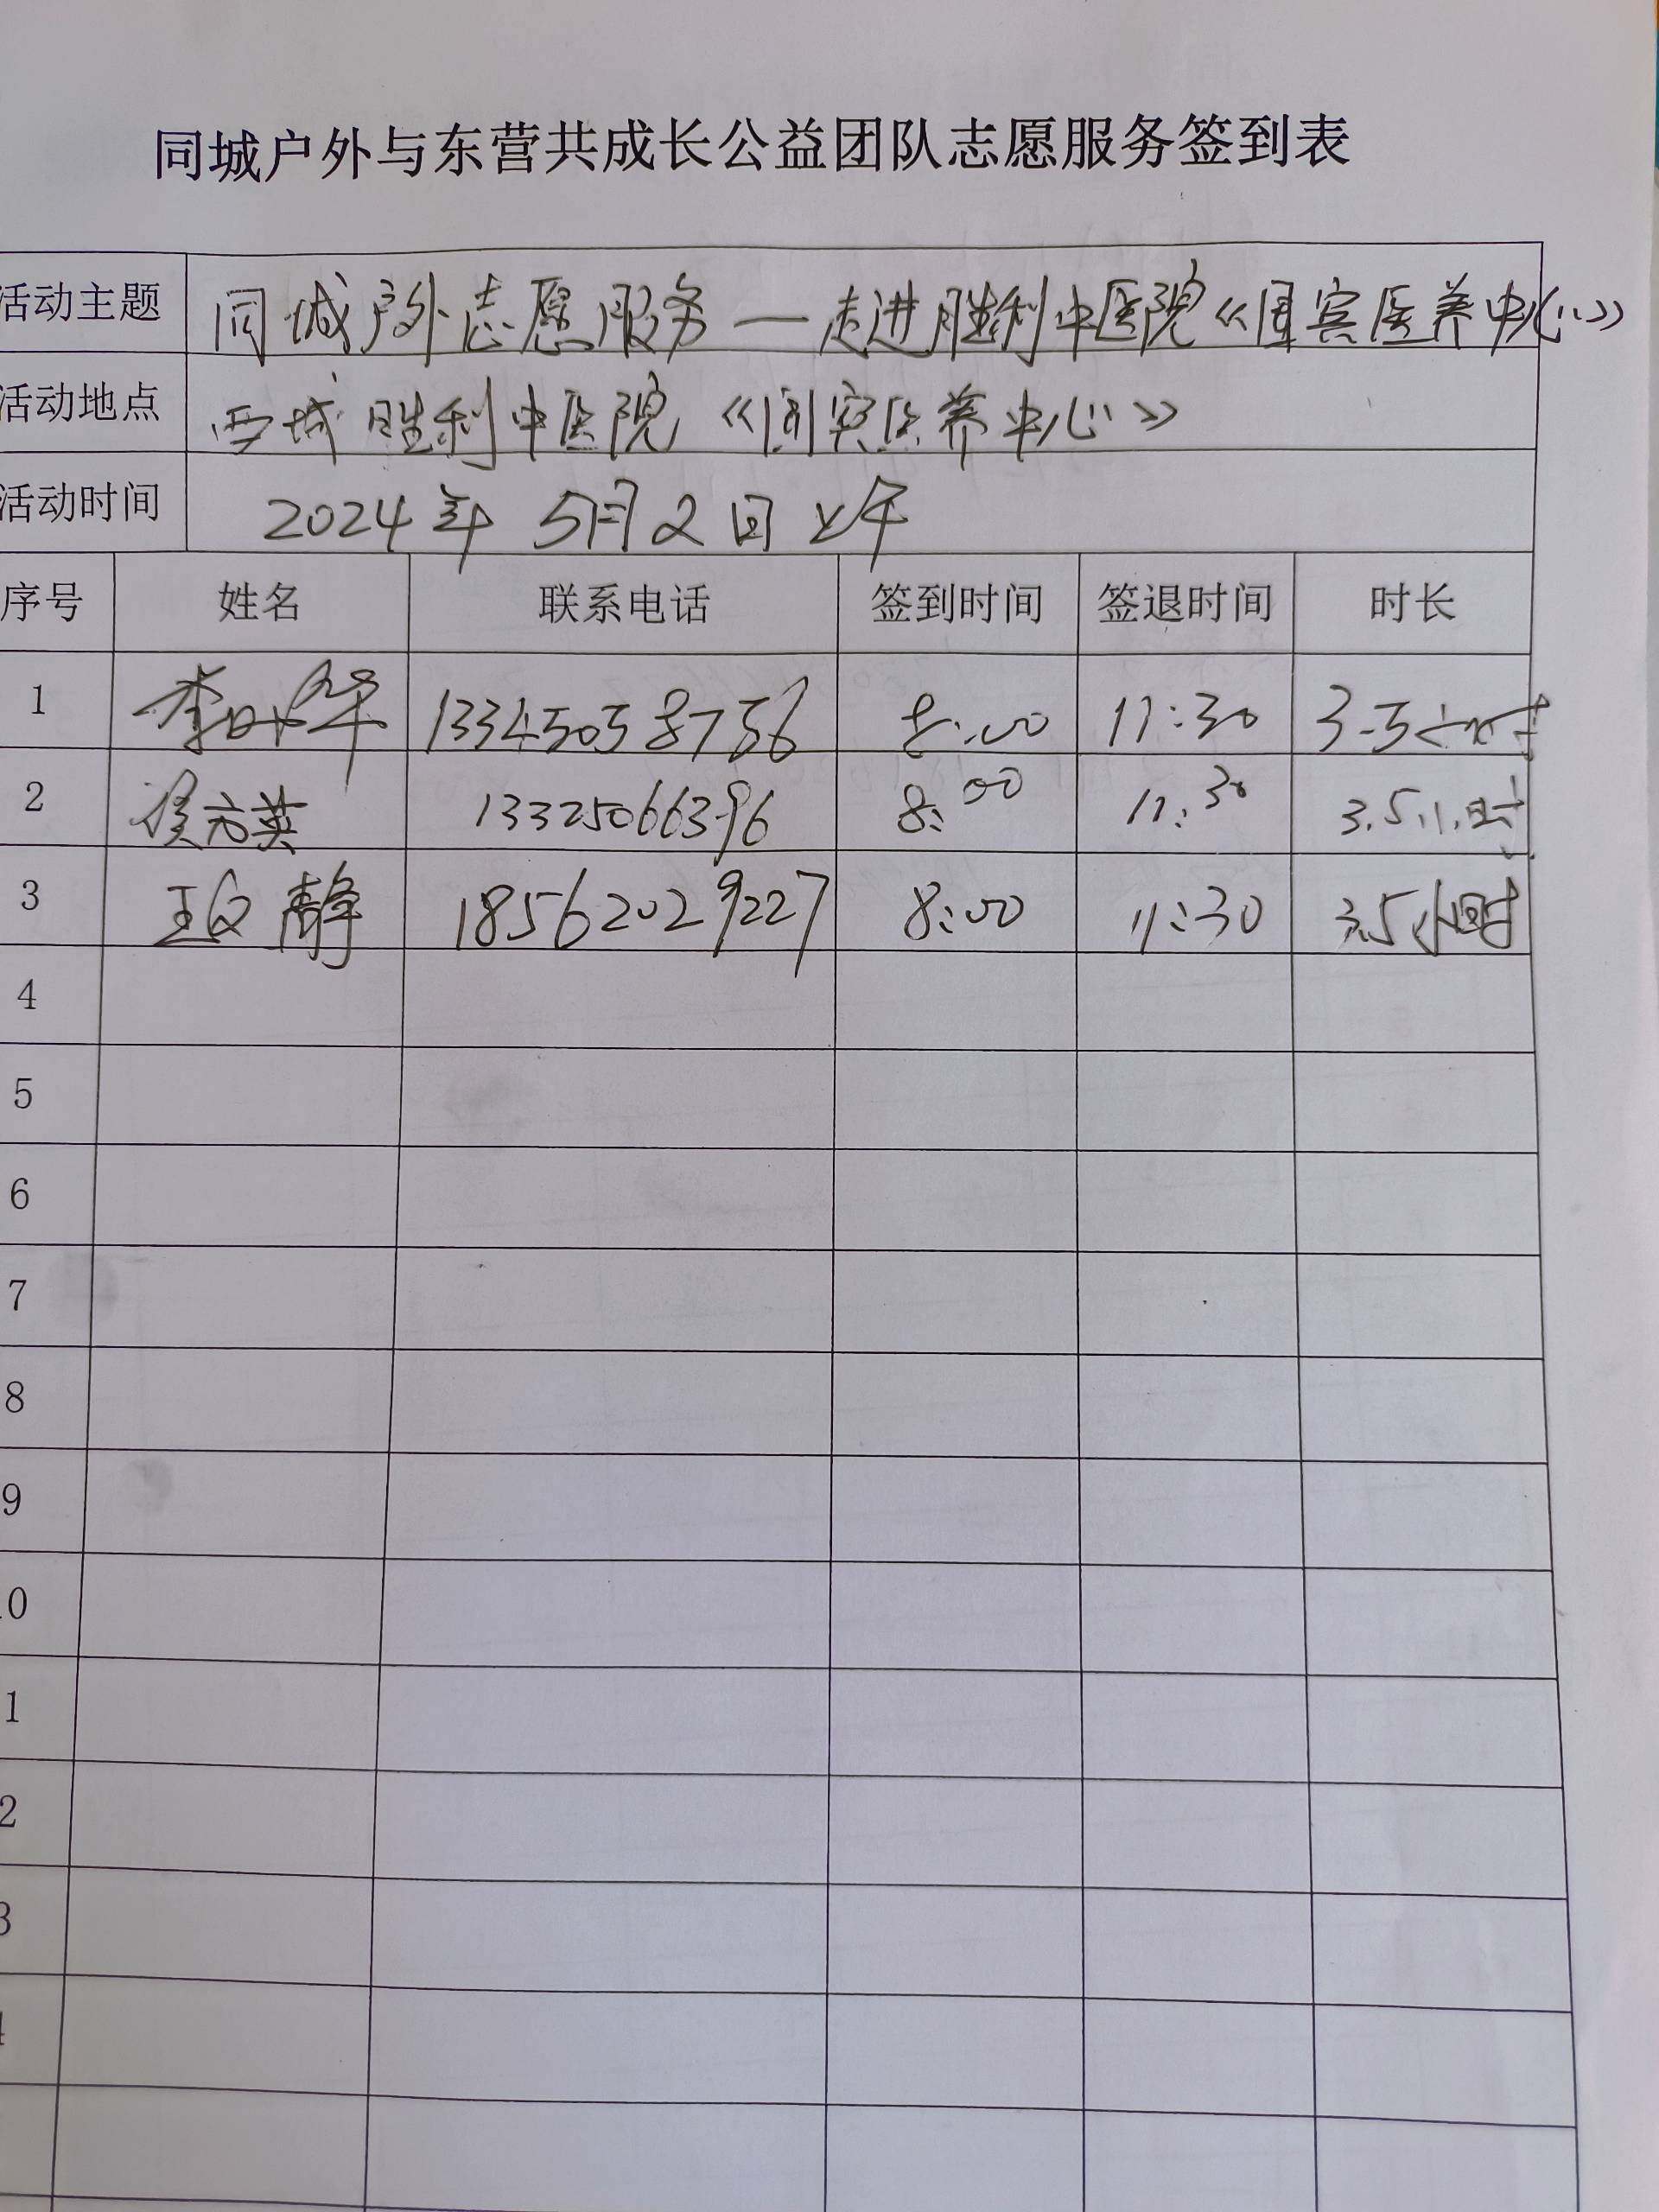 同城户外与东营共成长公益团队志愿服务签到表
活动主题 同城户外志愿服务—走进胜利中医院《国宾医养中心》
活动地点 西城胜利中医院《国宾医养中心》
活动时间 2024年5月2日上午
序号 姓名 联系电话 签到时间 签退时间 时长
1 李 华 13345058756 8:00 11:30 3.5小时
2 侯方英 13325066396 8:00 11:30 3.5小时
3 王文静 18562029227 8:00 11:30 3.5小时
4
5
6
7
8
9
0
1
2
3